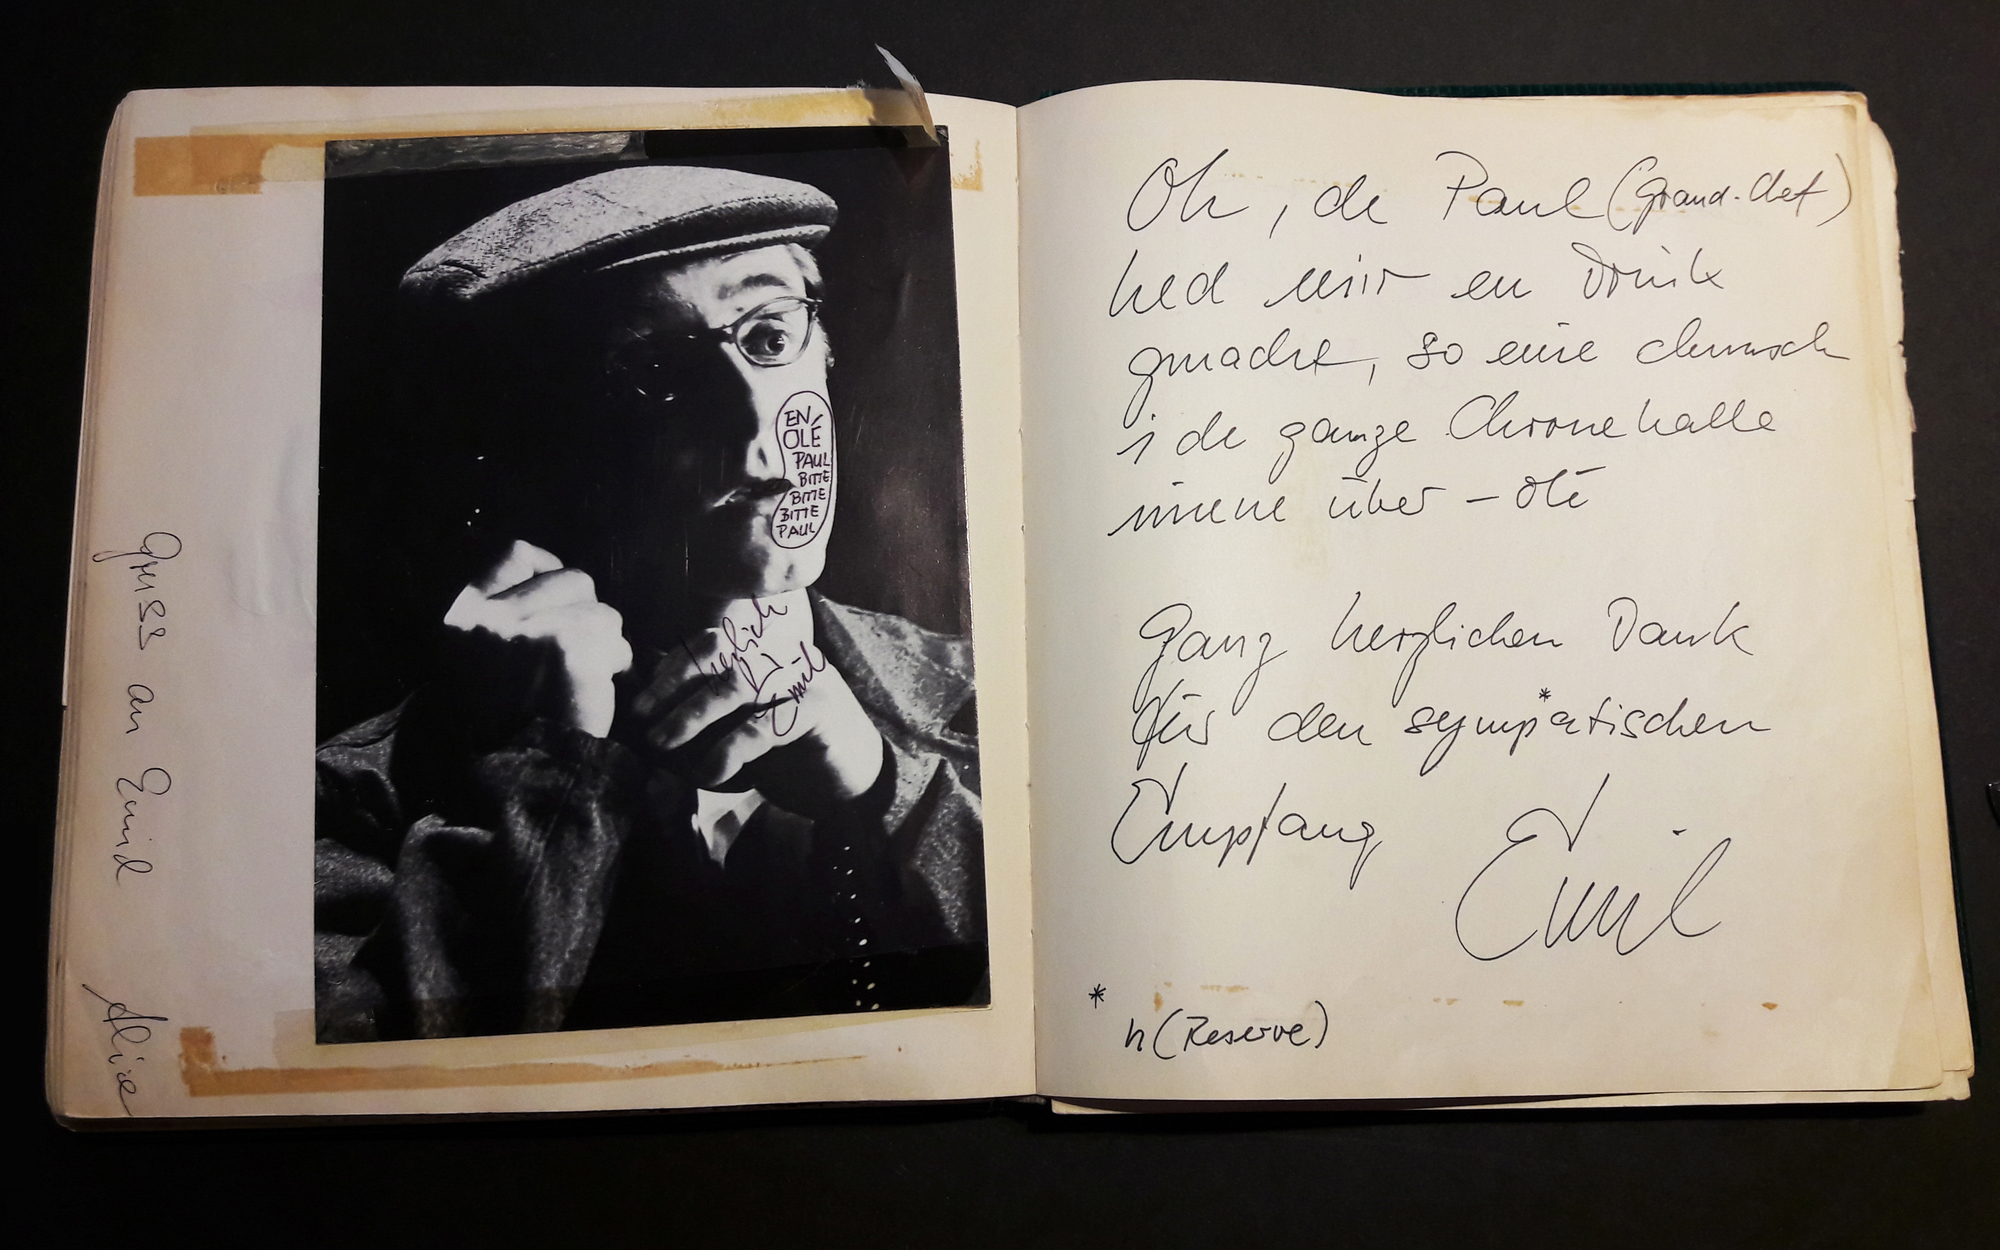 Gruss an Emil Alice
EN
OLÉ
PAUL
BITTE
BITTE
BITTE
PAUL
herzlich
Emil
Oh, de Paul (Grand-Chef)
hed mir en Drink
gmacht, so eine chunsch
i de ganze Chronehalle
niene über – olé
Ganz herzlichen Dank
für den symp*atischen
Empfang
Emil
*
h (Reserve)